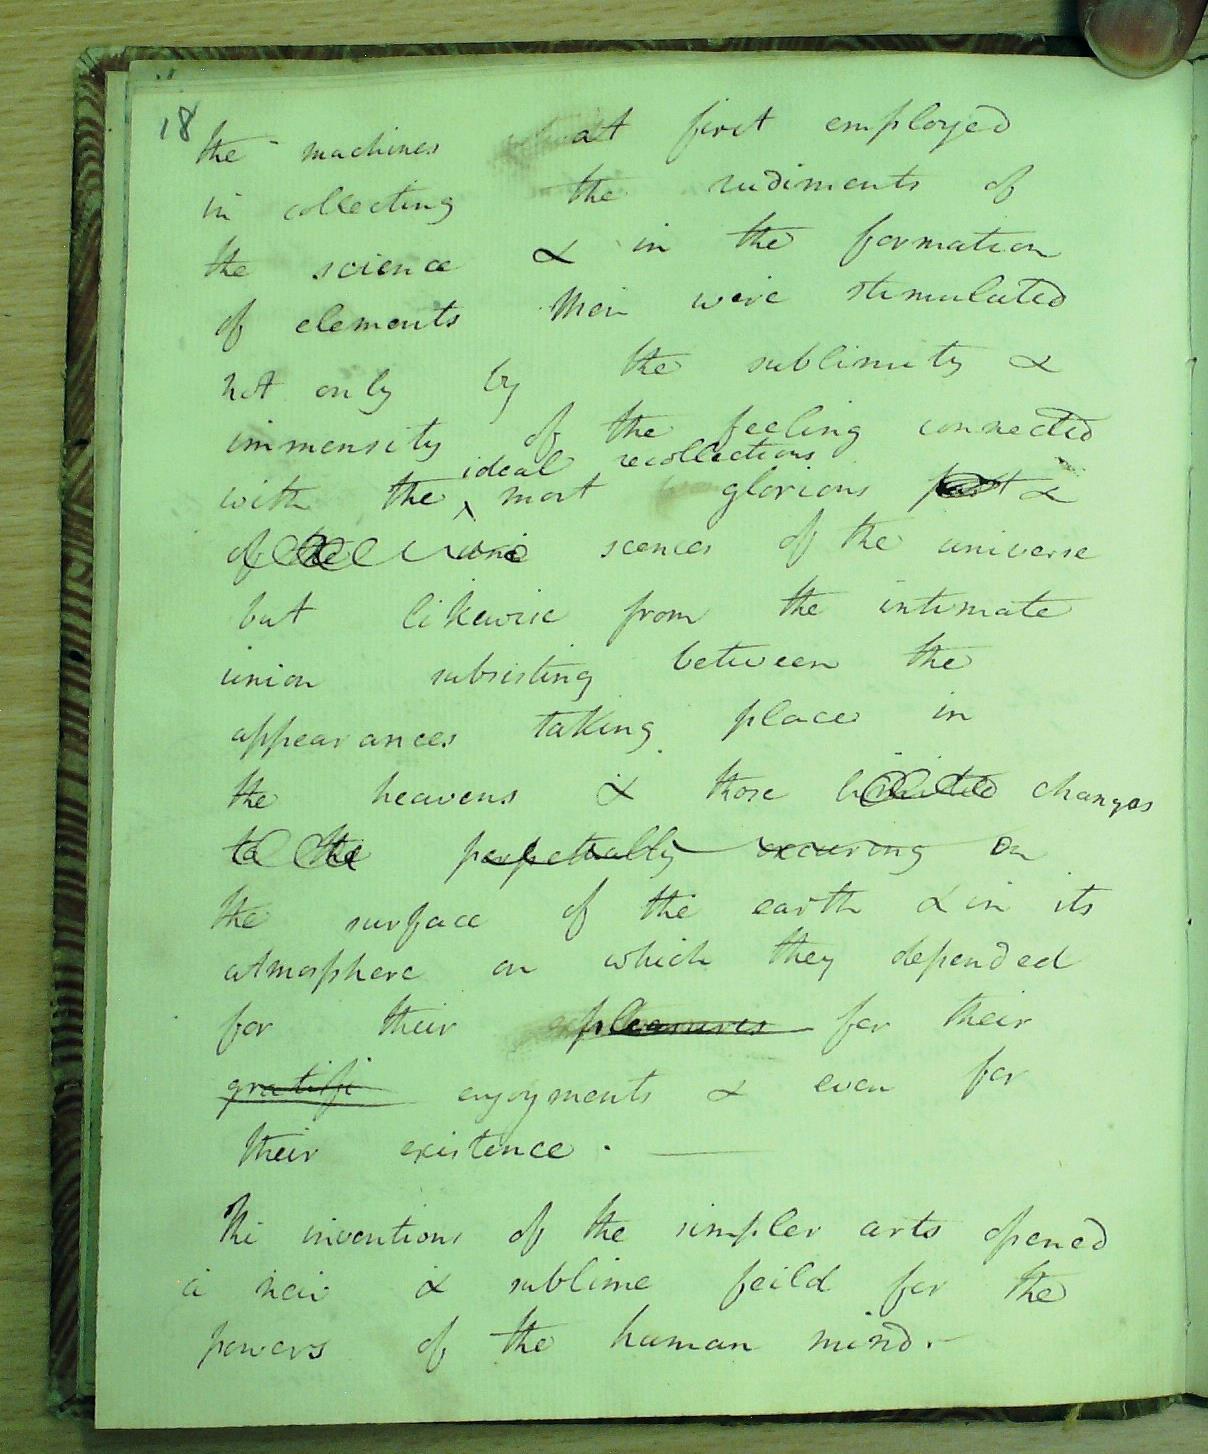 18
the machines at first employed
in collecting the rudiments of
the science & in the formation
of elements Men were stimulated
not only by the sublimity &
immensity of the feeling connected
ideal recollections
with the most glorious past &
of the scenes of the universe
but likewise from the intimate
union subsisting between the
appearances taking place in
the heavens & those limited changes
to the perpetually occuring on
the surface of the earth & in its
atmosphere on which they depended
for their pleasures for their
gratifi enjoyments & even for
their existence. —
The inventions of the simpler arts opened
a new & sublime feild for the
powers of the human mind. -